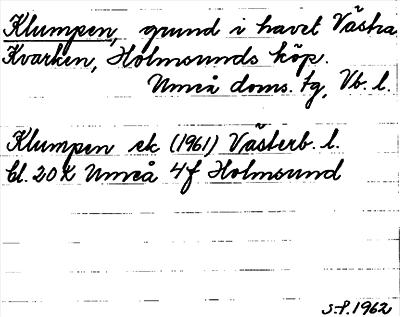 Klumpen, grund i havet Västra
Kvarken, Holmsunds köp.
Umeå doms. tg, Vb. l.
Klumpen ek (1961) Västerb. l.
bl. 20K Umeå 4f Holmsund
S.P. 1962